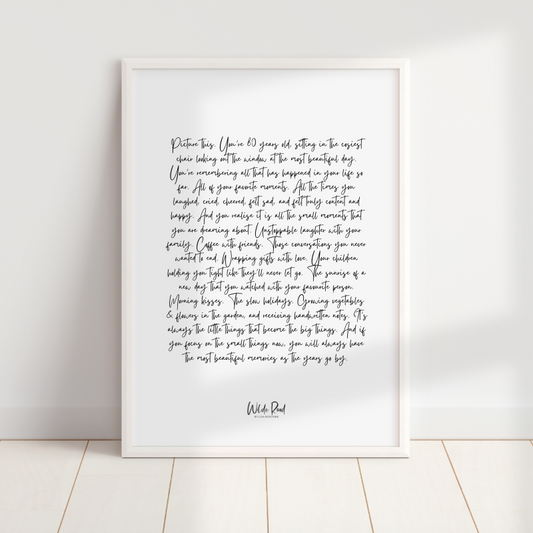 Picture this. You're 80 years old, sitting in the cosiest
chair looking out the window at the most beautiful day.
You're remembering all that has happened in your life so
far. All of your favorite moments. All the times you
laughed, cried, cheered, felt sad, and felt truly content and
happy. And you realise it is all the small moments that
you are dreaming about. Unstoppable laughter with your
family. Coffee with friends. Those conversations you never
wanted to end. Wrapping gifts with love. Your children
holding you tight like they'll never let go. The sunrise of a
new day that you watched with your favourite person.
Morning kisses. The slow holidays. Growing vegetables
& flowers in the garden, and receiving handwritten notes. It's
always the little things that become the big things. And if
you focus on the small things now, you will always have
the most beautiful memories as the years go by.
Wilde Road